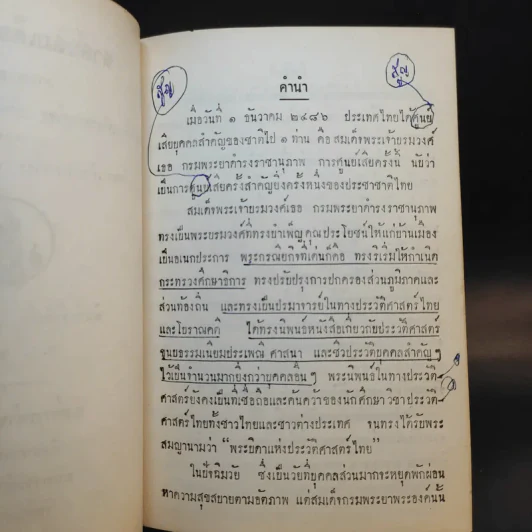 สูญ
สูญ
คำนำ
เมื่อวันที่ ๑ ธันวาคม ๒๔๘๖ ประเทศไทยได้ศูนย์
เสียบุคคลสำคัญของชาติไป ๑ ท่าน คือ สมเด็จพระเจ้าบรมวงศ์
เธอ กรมพระยาดำรงราชานุภาพ การศูนย์เสียครั้งนี้ นับว่า
เป็นการศูนย์เสียครั้งสำคัญยิ่งครั้งหนึ่งของประชาชาติไทย
สมเด็จพระเจ้าบรมวงศ์เธอ กรมพระยาดำรงราชานุภาพ
ทรงเป็นพระบรมวงศ์ที่ทรงบำเพ็ญคุณประโยชน์ให้แก่บ้านเมือง
เป็นอเนกประการ พระกรณียกิจที่เด่นก็คือ ทรงริเริ่มให้กำเนิด
กระทรวงศึกษาธิการ ทรงปรับปรุงการปกครองส่วนภูมิภาคและ
ส่วนท้องถิ่น และทรงเป็นปรมาจารย์ในทางประวัติศาสตร์ไทย
และโบราณคดี ได้ทรงนิพนธ์หนังสือเกี่ยวกับประวัติศาสตร์
ขนบธรรมเนียมประเพณี ศาสนา และชีวประวัติบุคคลสำคัญ ๆ
ไว้เป็นจำนวนมากยิ่งกว่าบุคคลอื่น ๆ พระนิพนธ์ในทางประวัติ-
ศาสตร์ยังคงเป็นที่เชื่อถือและค้นคว้าของนักศึกษาวิชาประวัติ-
ศาสตร์ไทยทั้งชาวไทยและชาวต่างประเทศ จนทรงได้รับพระ
สมญานามว่า “พระบิดาแห่งประวัติศาสตร์ไทย”
ในปัจฉิมวัย ซึ่งเป็นวัยที่บุคคลส่วนมากจะหยุดพักผ่อน
หาความสุขสบายตามอัตภาพ แต่สมเด็จกรมพระยาพระองค์นั้น